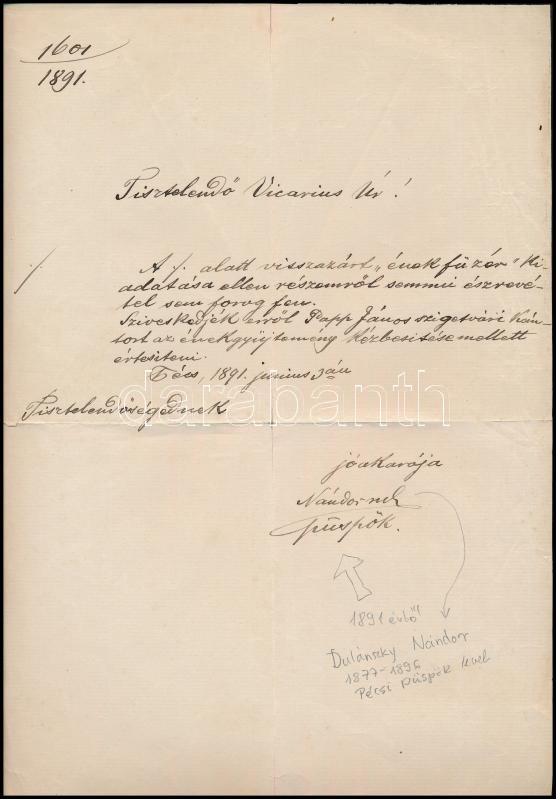 1601
1891.
Tisztelendő Vicarius Úr!
A ./. alatt visszazárt "ének füzér" ki-
adatása ellen részemről semmi észrevé-
tel sem forog fen.
Sziveskedjék erről Papp János szigetvári kán-
tort az énekgyüjtemény kézbesitése mellett
értesiteni.
Pécs, 1891. junius 3án
Tisztelendőségednek
jóakarója
Nándor mk
püspök.
1891 évből
Dulánszky Nándor
1877-1896
Pécsi Püspök level
darabanth